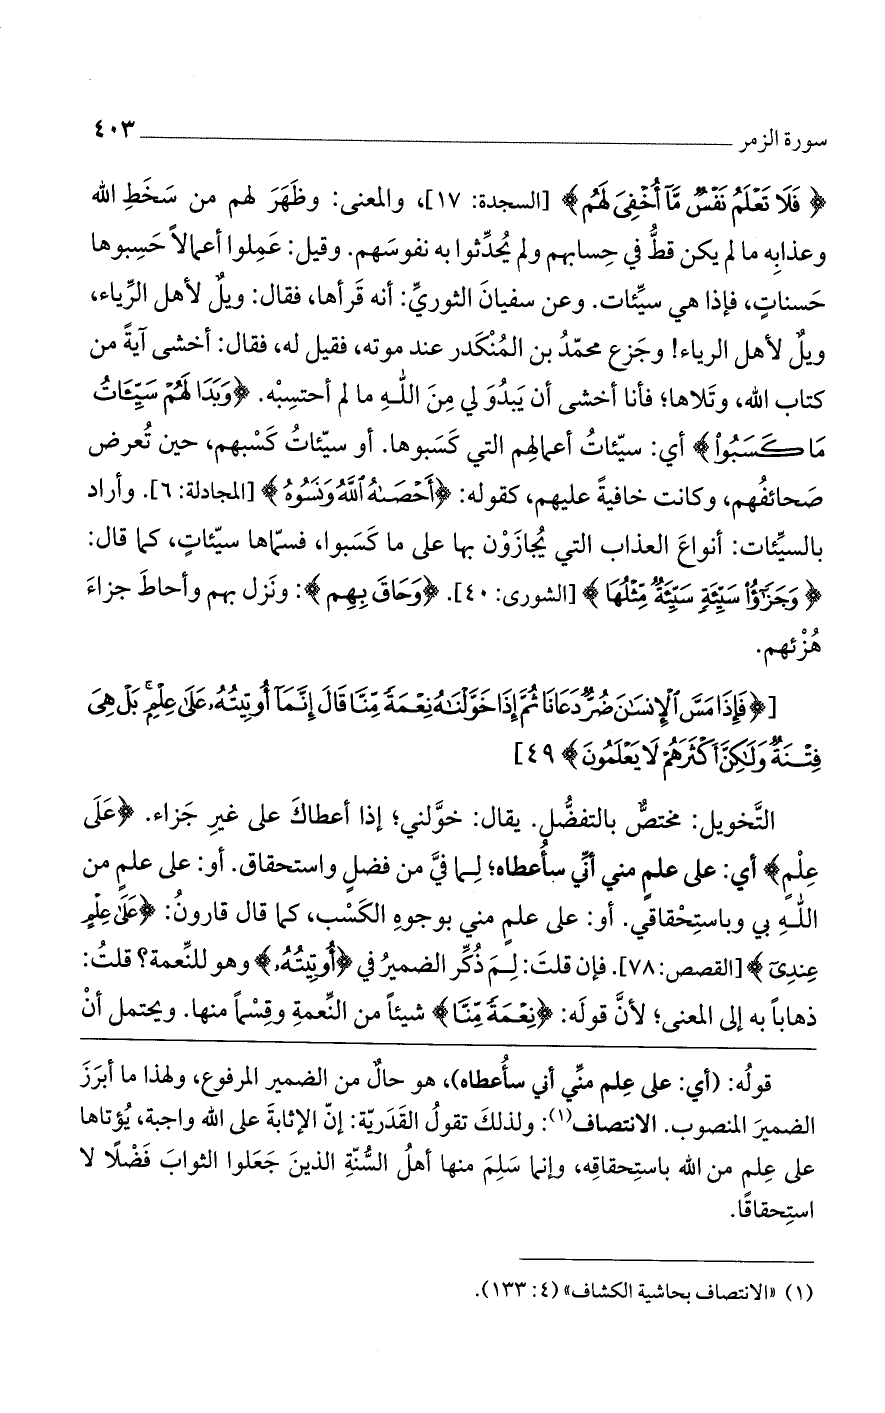 سورة الزمر ٤٠٣
﴿فَلَا تَعْلَمُ نَفْسٌ مَّآ أُخْفِىَ لَهُم﴾ [السجدة: ١٧]، والمعنى: وظَهَرَ لهم من سَخَطِ الله
وعذابِه ما لم يكن قطُّ في حِسابهم ولم يُحدِّثوا به نفوسَهم. وقيل: عَمِلوا أعمالاً حَسِبوها
حَسناتٍ، فإذا هي سيِّئات. وعن سفيانَ الثوريِّ: أنه قرأها، فقال: ويلٌ لأهل الرِّياء،
ويلٌ لأهل الرياء! وجَزع محمّدُ بن المُنْكَدر عند موته، فقيل له، فقال: أخشى آيةً من
كتاب الله، وتَلاها؛ فأنا أخشى أن يَبدُوَ لي مِنَ اللـهِ ما لم أحتسِبْه. ﴿وَبَدَا لَهُمْ سَيِّـَٔاتُ
مَا كَسَبُوا۟﴾ أي: سيّئاتُ أعمالِهم التي كَسَبوها. أو سيّئاتُ كَسْبهم، حين تُعرض
صَحائفُهم، وكانت خافيةً عليهم، كقوله: ﴿أَحْصَىٰهُ ٱللَّهُ وَنَسُوهُ﴾ [المجادلة: ٦]. وأراد
بالسيِّئات: أنواعَ العذاب التي يُجازَوْن بها على ما كَسَبوا، فسمّاها سيّئاتٍ، كما قال:
﴿وَجَزَٰٓؤُا۟ سَيِّئَةٍ سَيِّئَةٌ مِّثْلُهَا﴾ [الشورى: ٤٠]. ﴿وَحَاقَ بِهِم﴾: ونَزل بهم وأحاطَ جزاءَ
هُزْئهم.
[﴿فَإِذَا مَسَّ ٱلْإِنسَٰنَ ضُرٌّ دَعَانَا ثُمَّ إِذَا خَوَّلْنَٰهُ نِعْمَةً مِّنَّا قَالَ إِنَّمَآ أُوتِيتُهُۥ عَلَىٰ عِلْمٍۭ ۚ بَلْ هِىَ
فِتْنَةٌ وَلَٰكِنَّ أَكْثَرَهُمْ لَا يَعْلَمُونَ﴾ ٤٩]
التَّخويل: مختصٌّ بالتفضُّل. يقال: خوَّلني؛ إذا أعطاكَ على غيرِ جَزاء. ﴿عَلَى
عِلْمٍ﴾ أي: على علمٍ مني أنِّي سأُعطاه؛ لِـما فيَّ من فضلٍ واستحقاق. أو: على علمٍ من
اللـهِ بي وباستِحْقاقي. أو: على علمٍ مني بوجوهِ الكَسْب، كما قال قارونُ: ﴿عَلَىٰ عِلْمٍ
عِندِىٓ﴾ [القصص: ٧٨]. فإن قلتَ: لِـمَ ذُكِّر الضميرُ في ﴿أُوتِيتُهُۥ﴾ وهو للنِّعمة؟ قلتُ:
ذهاباً به إلى المعنى؛ لأنَّ قولَه: ﴿نِعْمَةً مِّنَّا﴾ شيئاً من النِّعمةِ وقِسْماً منها. ويحتمل أنْ
قولُه: (أي: على عِلم منِّي أني سأُعطاه)، هو حالٌ من الضمير المرفوع، ولهذا ما أبرَزَ
الضميرَ المنصوب. الانتصاف(١): ولذلكَ تقولُ القَدَريّة: إنّ الإثابةَ على الله واجبة، يُؤتاها
على عِلم من الله باستِحقاقِه، وإنما سَلِمَ منها أهلُ السُّنّةِ الذينَ جَعَلوا الثوابَ فَضْلًا لا
استِحقاقًا.
(١) «الانتصاف بحاشية الكشاف» (٤: ١٣٣).